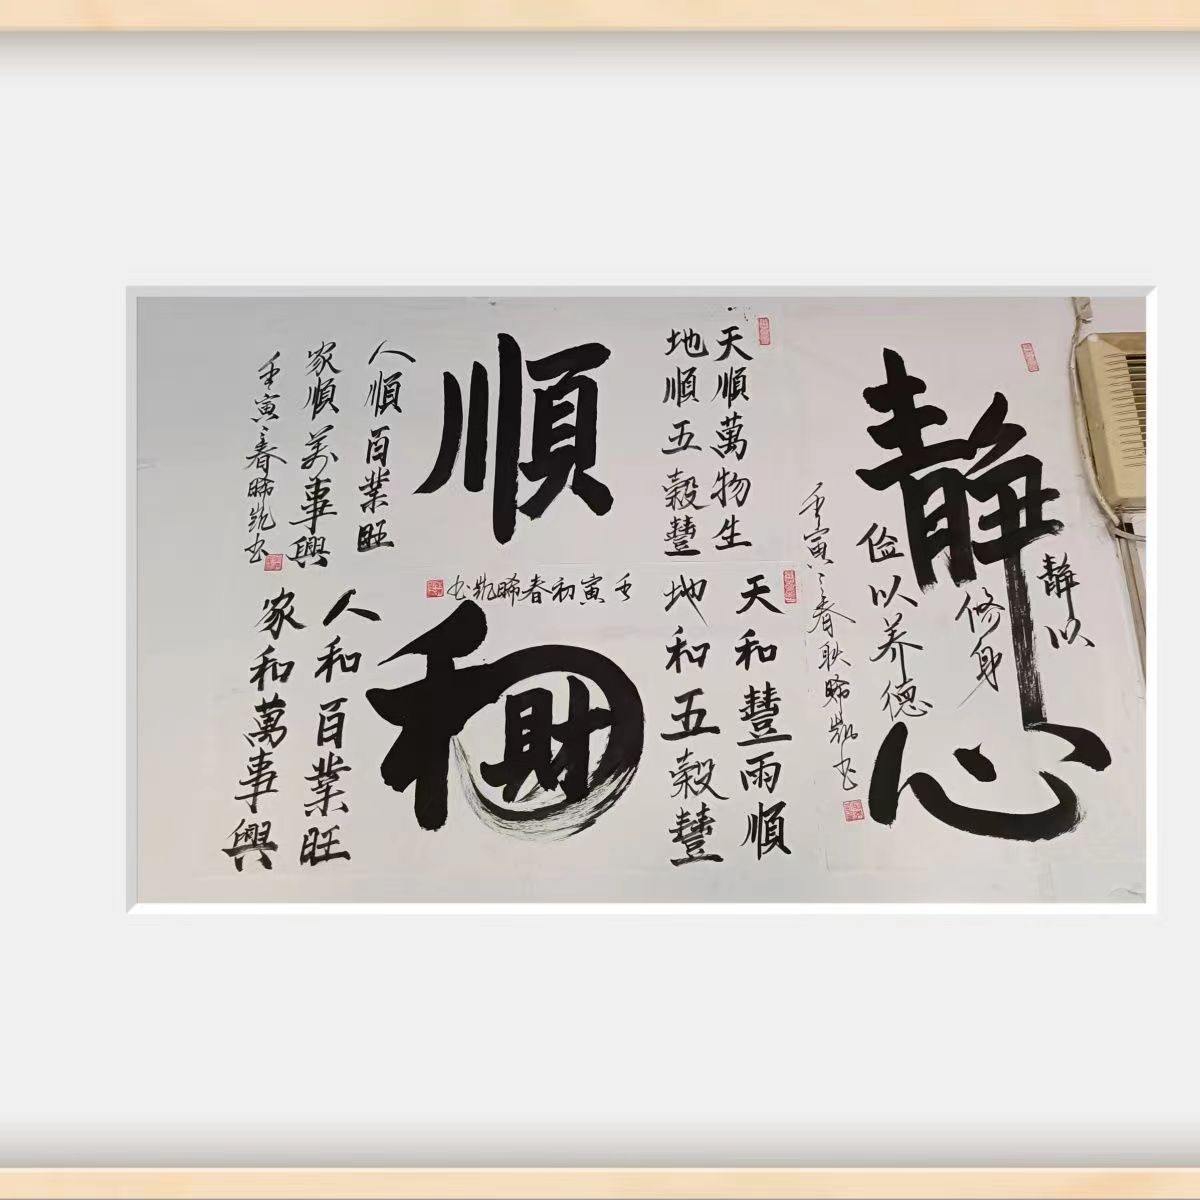 静心
静以
修身
俭以养德
壬寅之春耿晞凯书
天順萬物生
地順五穀豐
順
人順百業旺
家順萬事興
壬寅之春晞凯书
天和豐雨順
地和五穀豐
壬寅初春晞凯书
和
財
人和百業旺
家和萬事興